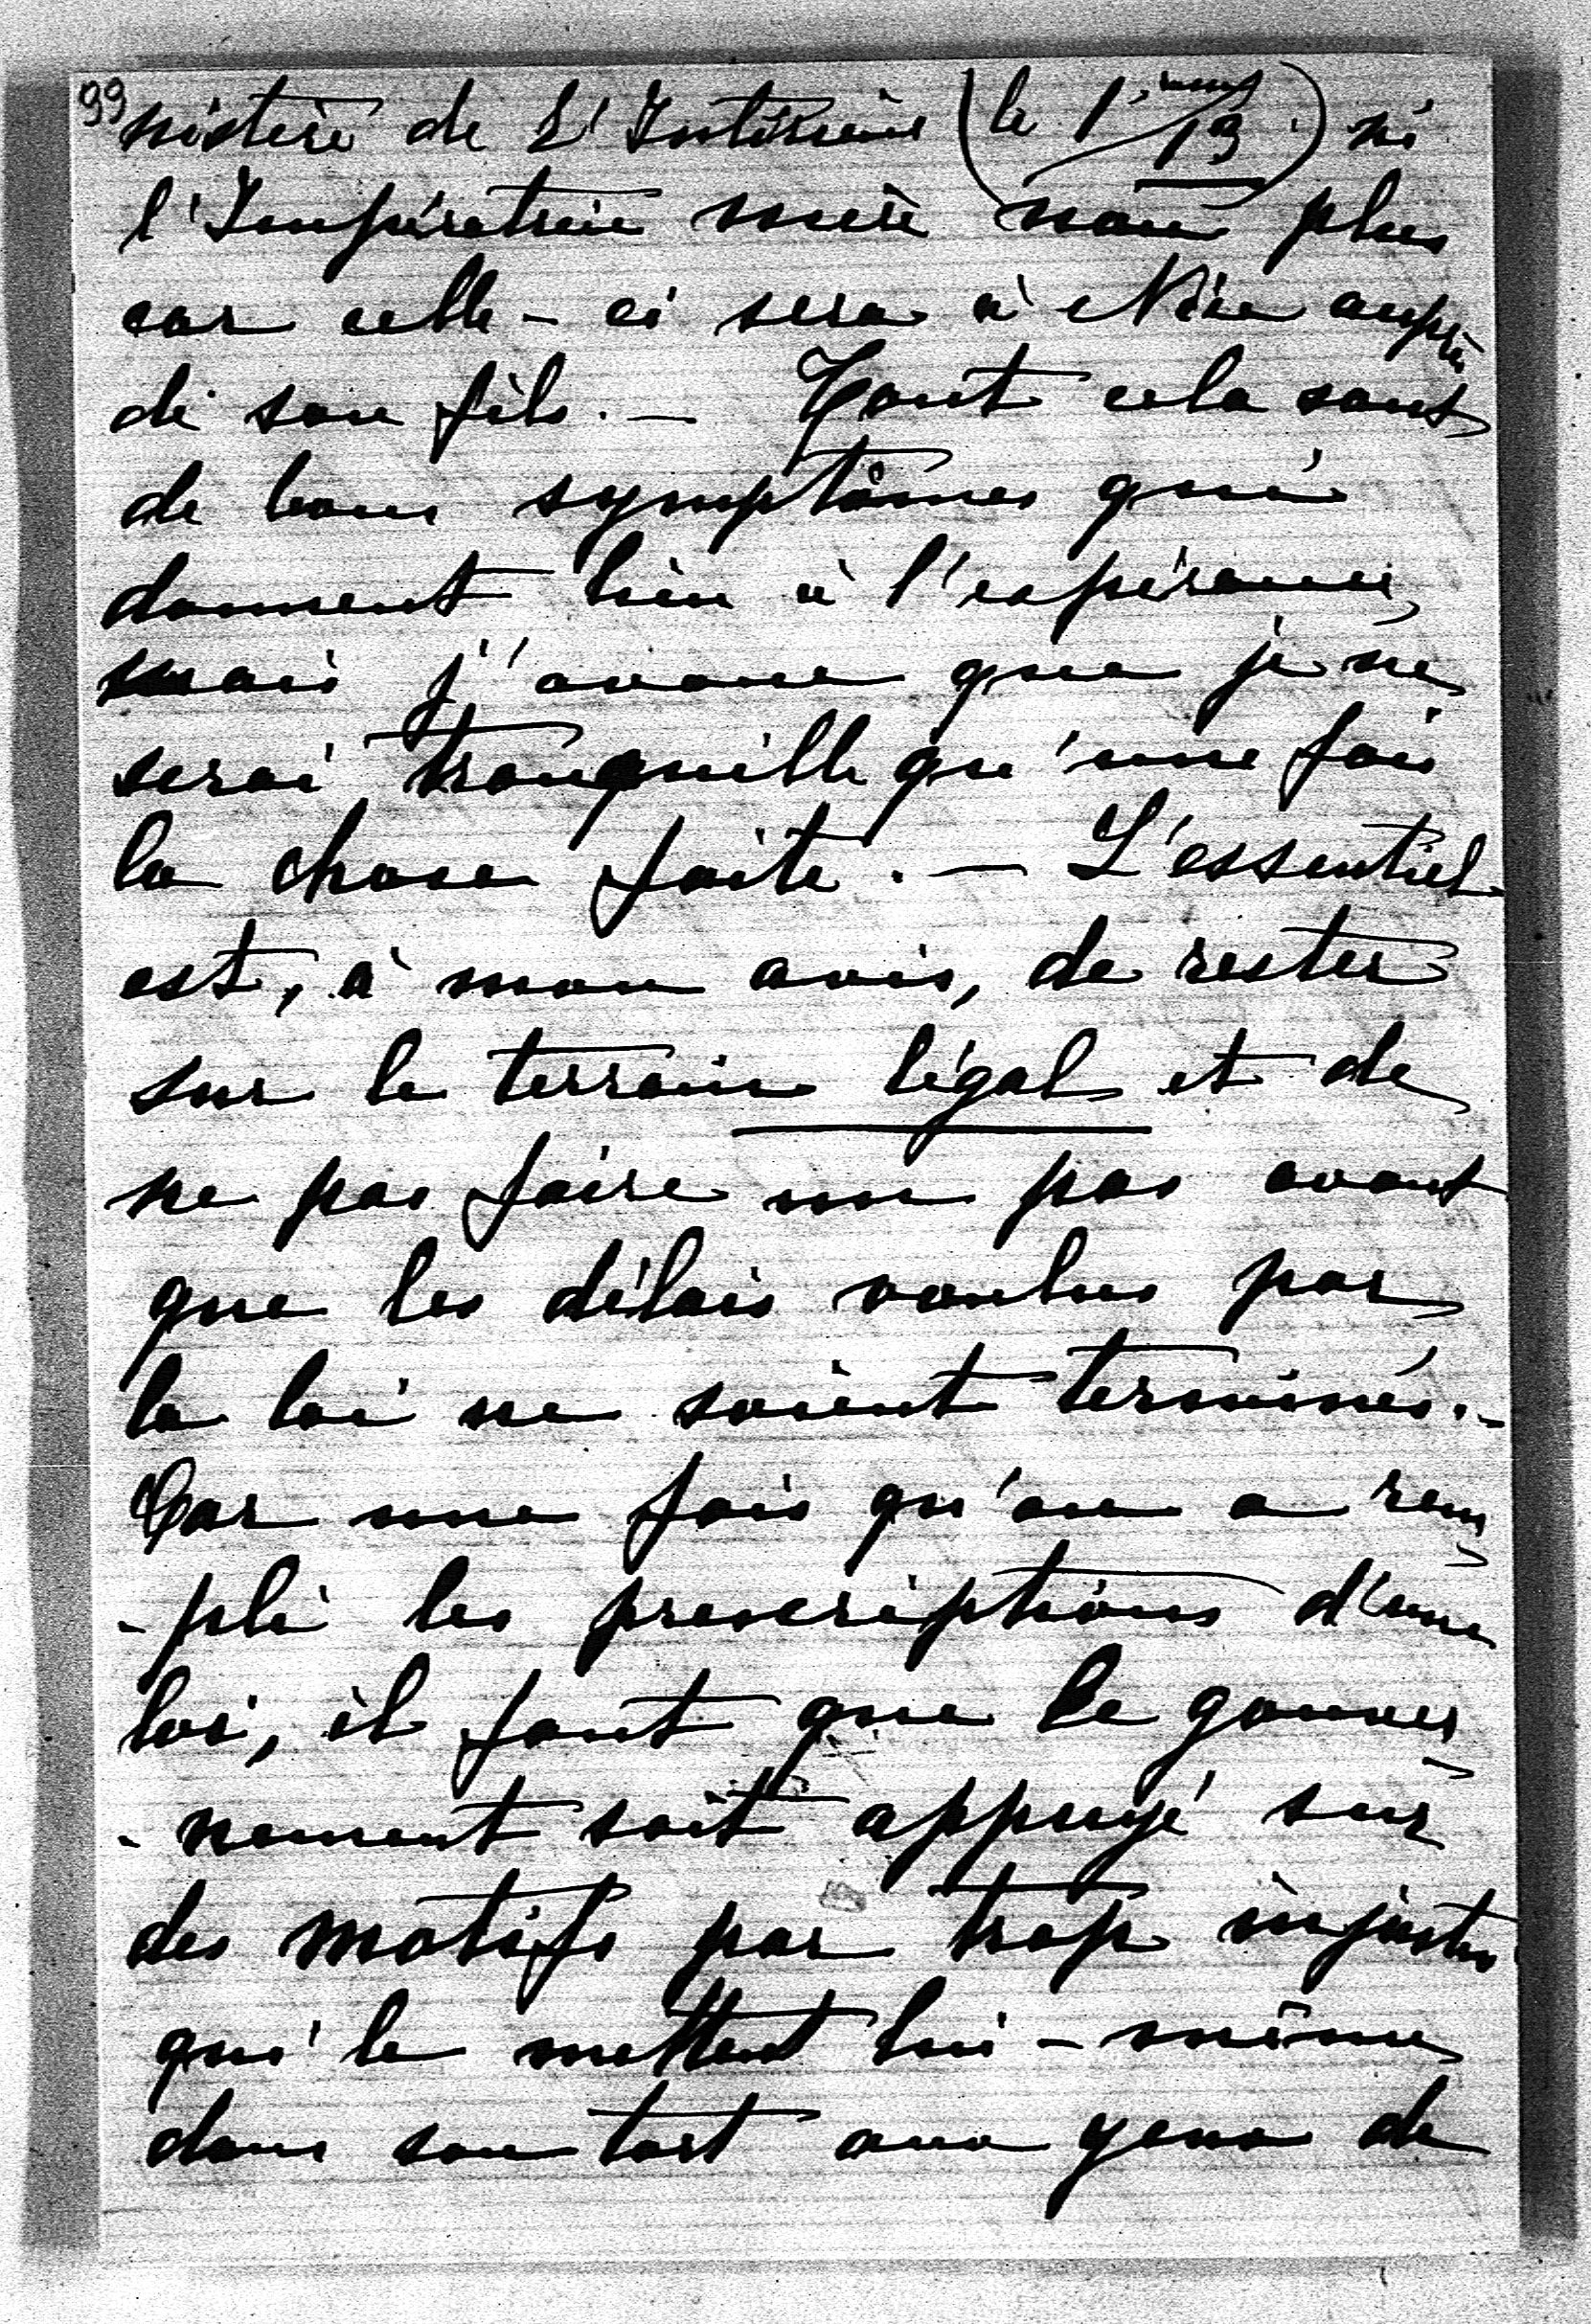 99
nistère de l'Intérieur (le 1/13 mars) ni
l'Impératrice mère non plus
car celle-ci sera à Nice auprès
de son fils. — Tout cela sont
de bons symptômes qui
donnent lieu à l'espérance,
mais j'avoue que je ne
serai tranquille qu'une fois
la chose faite. — L'essentiel
est, à mon avis, de rester
sur le terrain légal et de
ne pas faire un pas avant
que les délais voulus par
la loi ne soient terminés. -
Car une fois qu'on a rem
-pli les prescriptions d'une
loi, il faut que le gouver
-nement soit appuyé sur
des motifs par trop injustes
qui le mettent lui-même
dans son tort aux yeux de